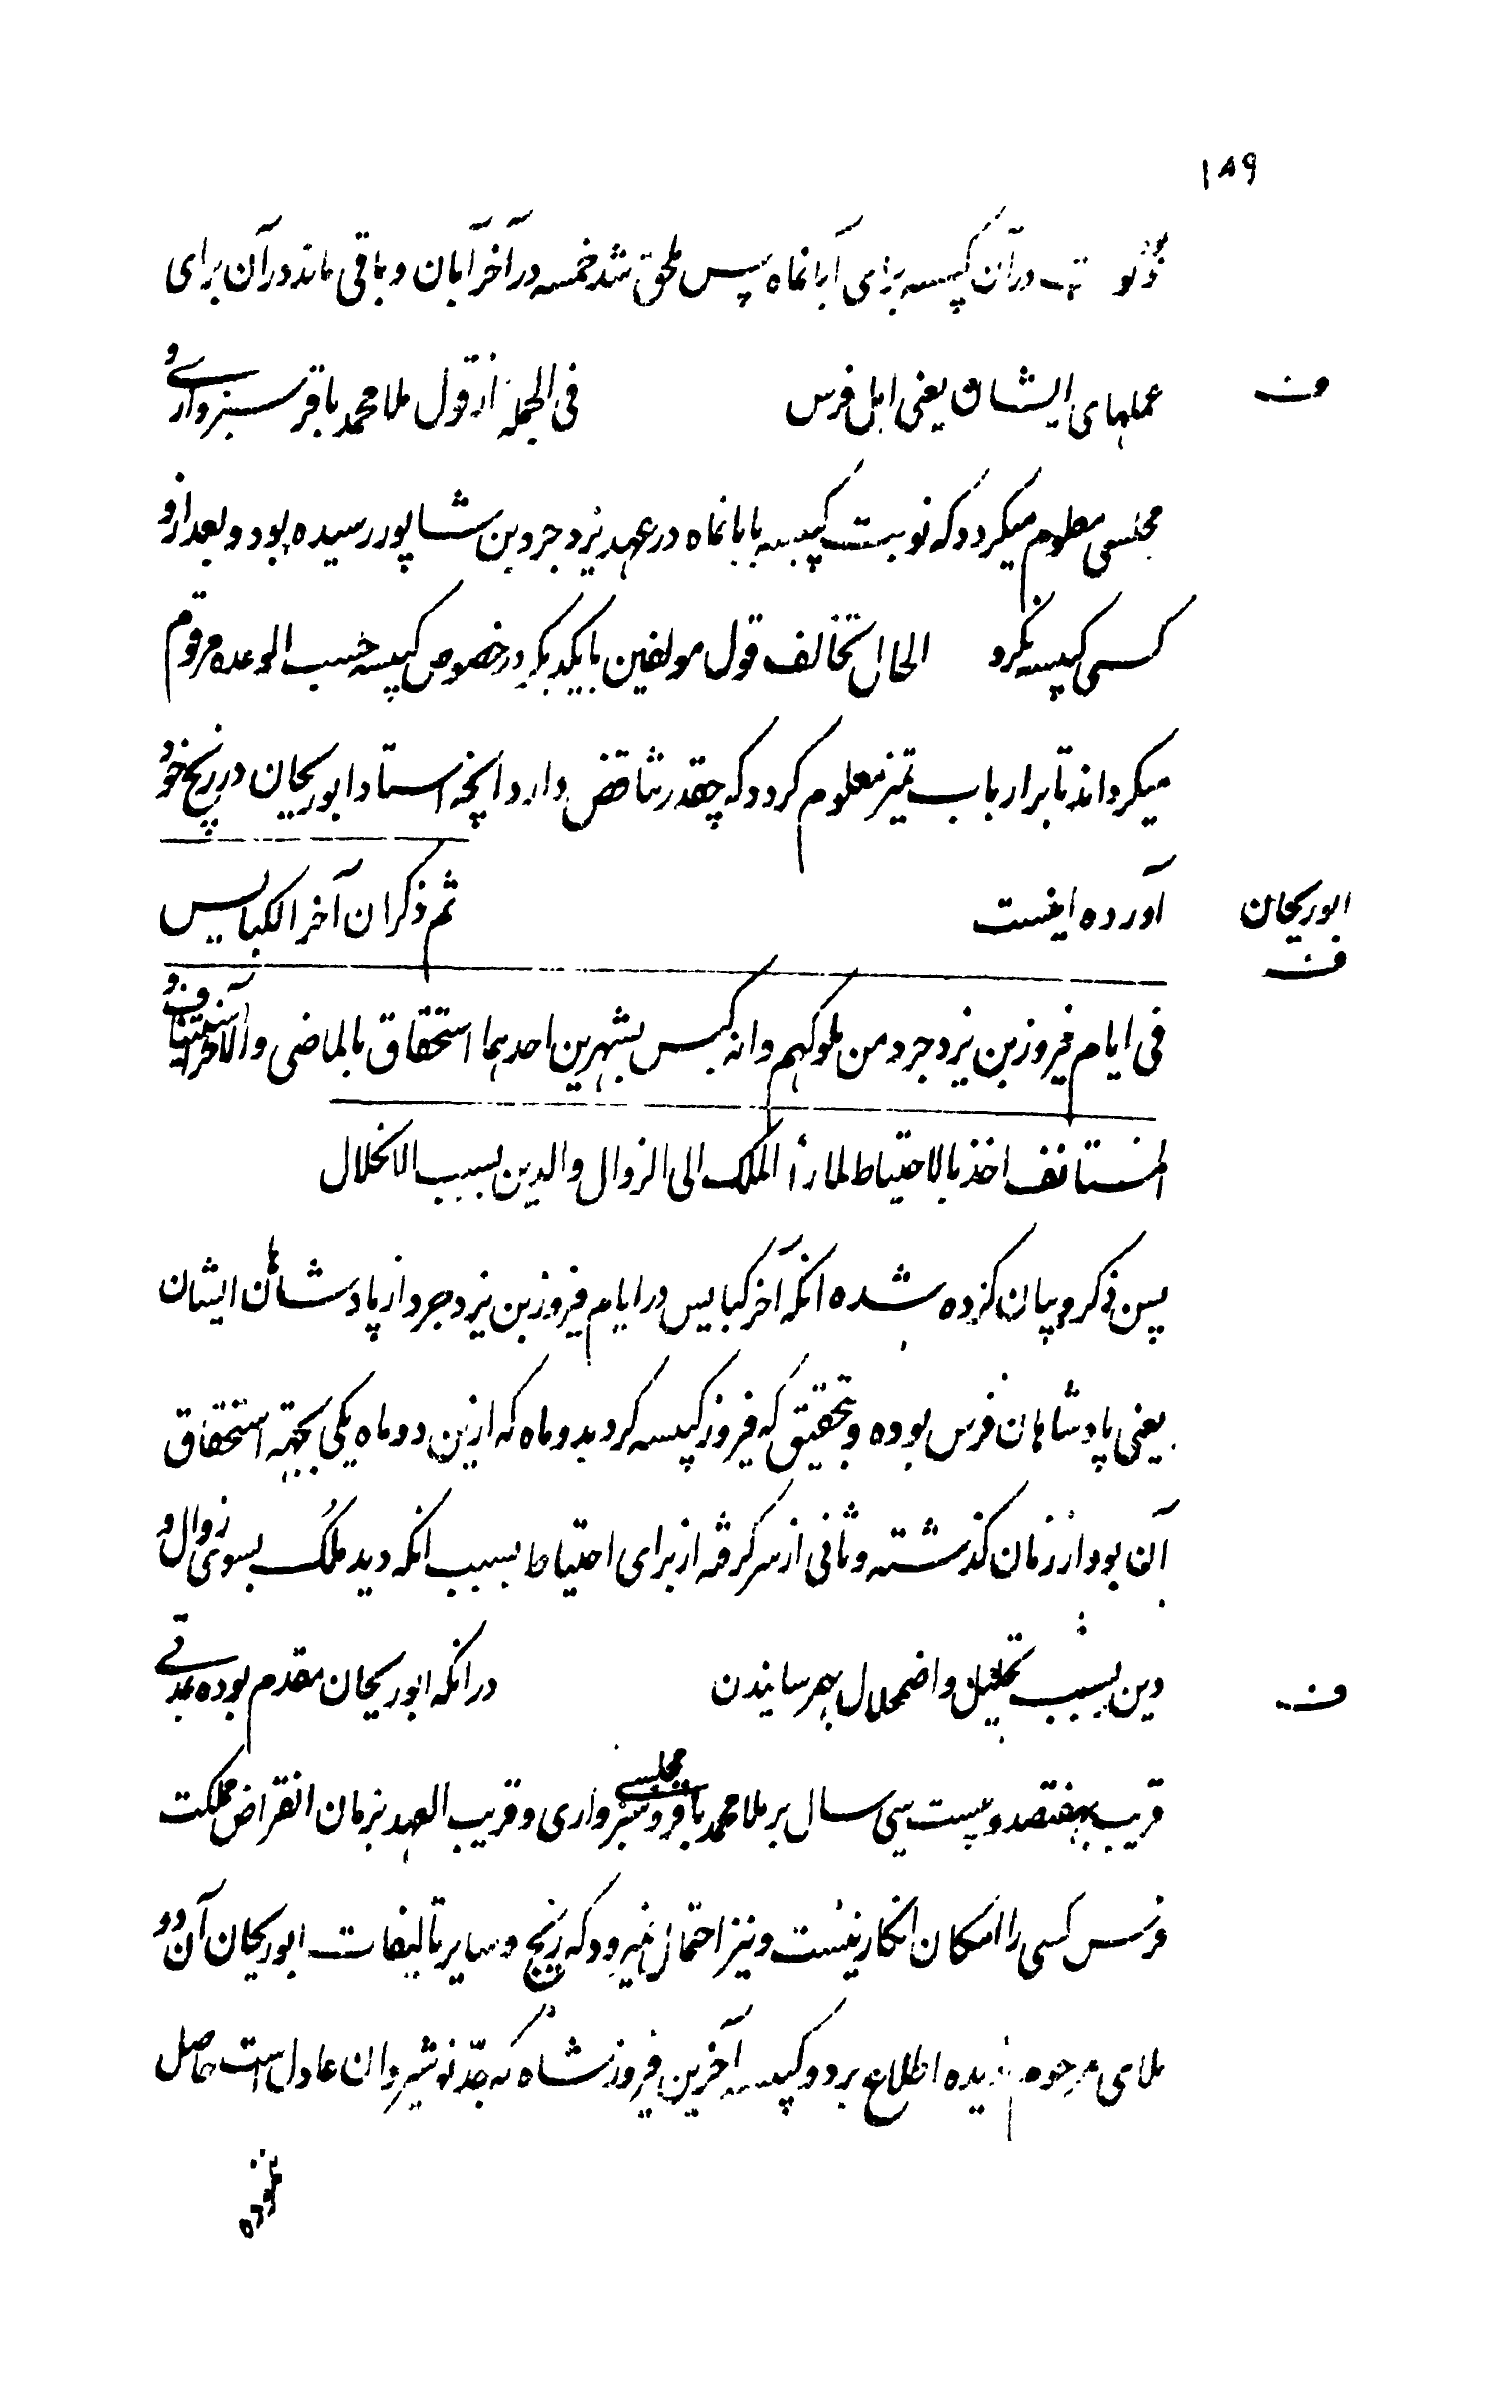 ۱۸۹
در آن کبیسه برای آبانماه پس ملحق شد خمسه در آخر آبان و باقی ماند در آن برای
عملهای ایشان یعنی اهل فرس فی الجمله از قول ملا محمد باقر سبزواری و
ف
مجلسی معلوم میکردد که نوبت کبیسه بابانماه در عهد یزدجرد بن شاپور رسیده بود و بعد از و
کسی کبیسه نکرد الحال تخالف قول مولفین بایکدیکر در خصوص کبیسه حسب الوعده مرقوم
میکرداند تا بر ارباب تمیز معلوم کردد که چقدر تناقض دارد انچه استاد ابوریحان در زیج خود
آورده اینست ثم ذکر ان آخر الکبایس
ابوریحان
ف
فی ایام فیروز بن یزدجرد من ملوکهم وانه کبس بشهرین احدهما استحقاق بالماضی والاخر استیناف و
المستانف اخذ بالاحتیاط لما رأ الملک الی الزوال والدین بسبب الانحلال
پس ذکر و بیان کرده شده انکه آخر کبایس در ایام فیروز بن یزدجرد از پادشاهان ایشان
یعنی پادشاهان فرس بوده و بتحقیق که فیروز کبیسه کرد بدو ماه که ازین دو ماه یکی بجهته استحقاق
آن بود از زمان کذشته و ثانی از سر کرفته از برای احتیاط بسبب انکه دید ملک بسوی زوال و
دین بسبب تحلیل و اضمحلال بهر سانیدن در انکه ابوریحان مقدم بوده بمدتی
ف
قریب بهفتصد و بیست سی سال بر ملا محمد باقر مجلسی و سبزواری و قریب العهد بزمان انقراض مملکت
فرس کسی را امکان انکار نیست و نیز احتمال نمیرود که زیج و سایر تالیفات ابوریحان آن دو
ملای مرحوم ندیده اطلاع برد و کبیسه آخرین فیروز شاه که جد نوشیروان عادل است حاصل
ننموده